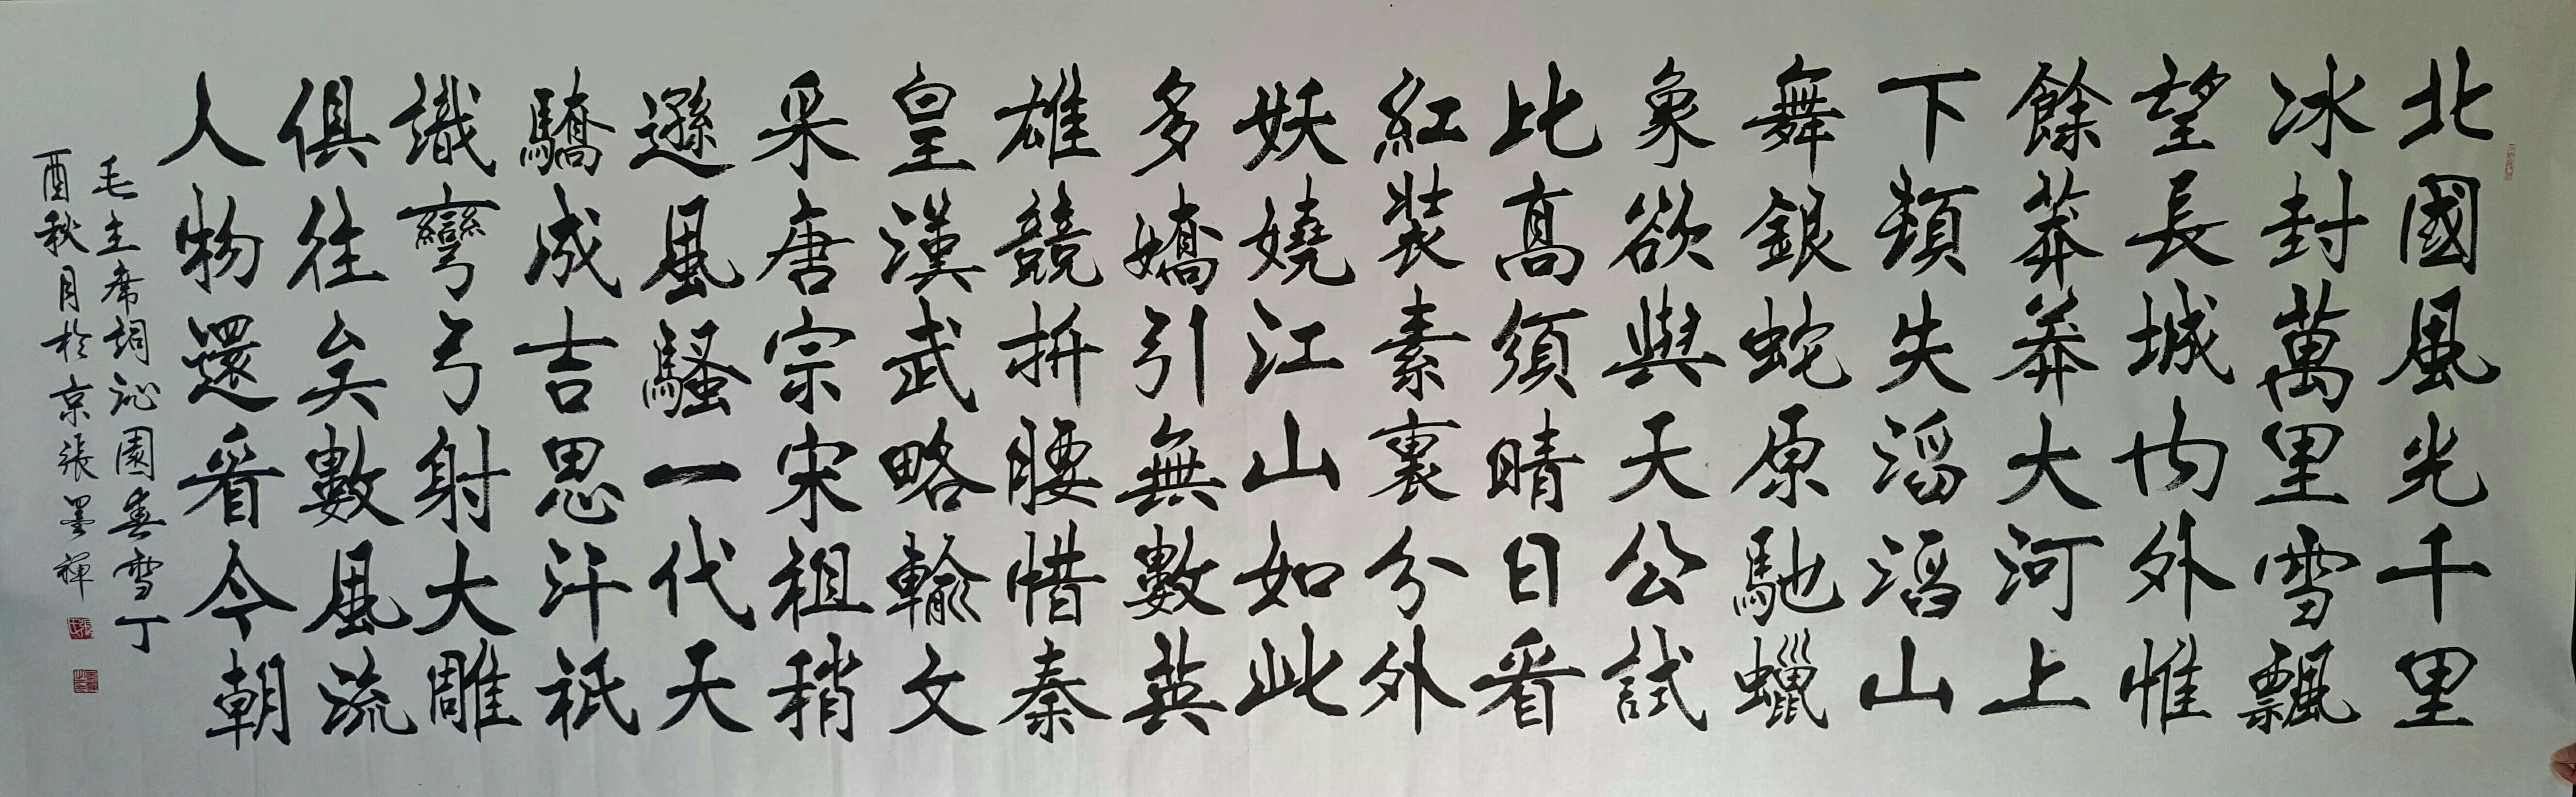 北國風光千里
冰封萬里雪飄
望長城内外惟
餘莽莽大河上
下頓失滔滔山
舞銀蛇原馳蠟
象欲與天公試
比高須晴日看
紅裝素裹分外
妖嬈江山如此
多嬌引無數英
雄競折腰惜秦
皇漢武略輸文
采唐宗宋祖稍
遜風騷一代天
驕成吉思汗祇
識彎弓射大雕
俱往矣數風流
人物還看今朝
毛主席詞沁園春雪丁
酉秋月於京張墨禪